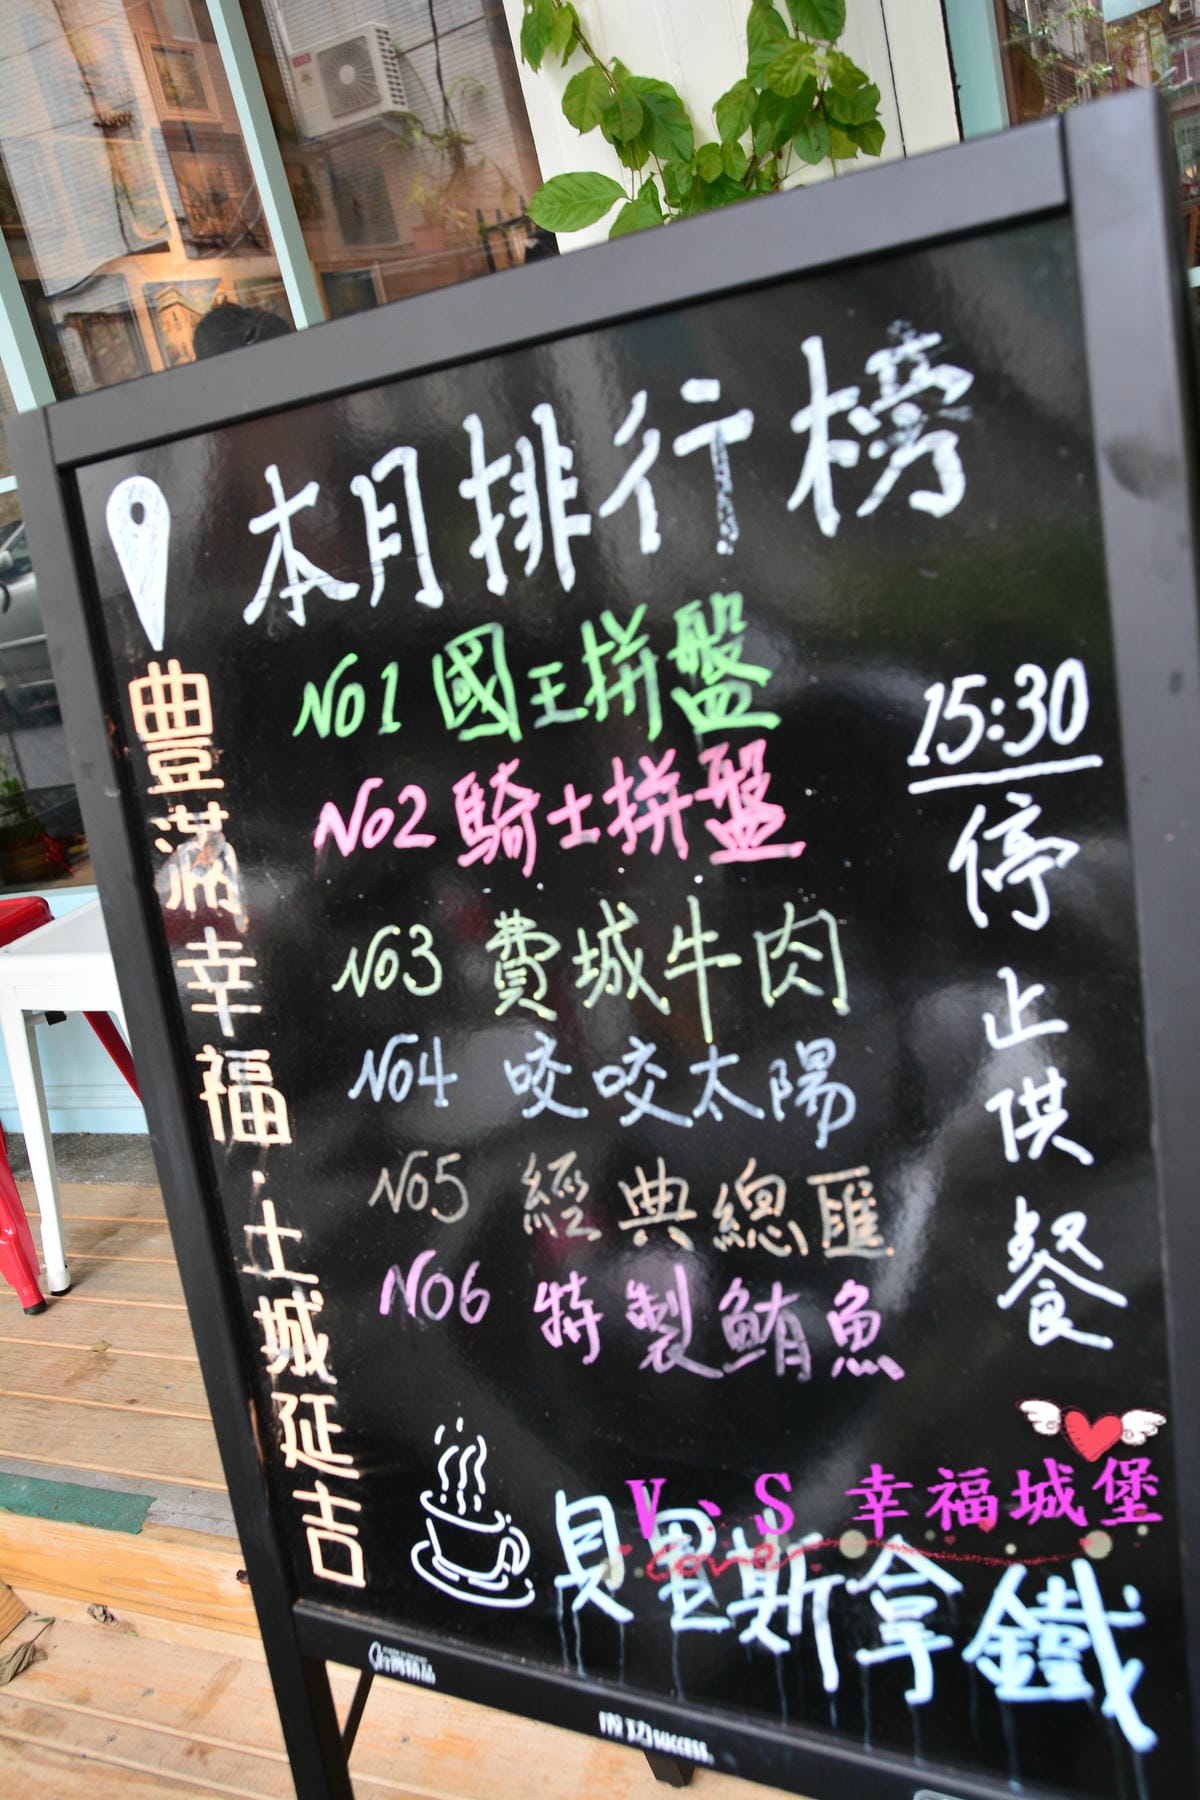 本月排行榜
No1 國王拼盤
No2 騎士拼盤
No3 費城牛肉
No4 咬咬太陽
No5 經典總匯
No6 特製鮪魚
豐滿幸福·土城延吉
15:30
停止供餐
V、S 幸福城堡
Love
貝里斯拿鐵
成功SUCCESS